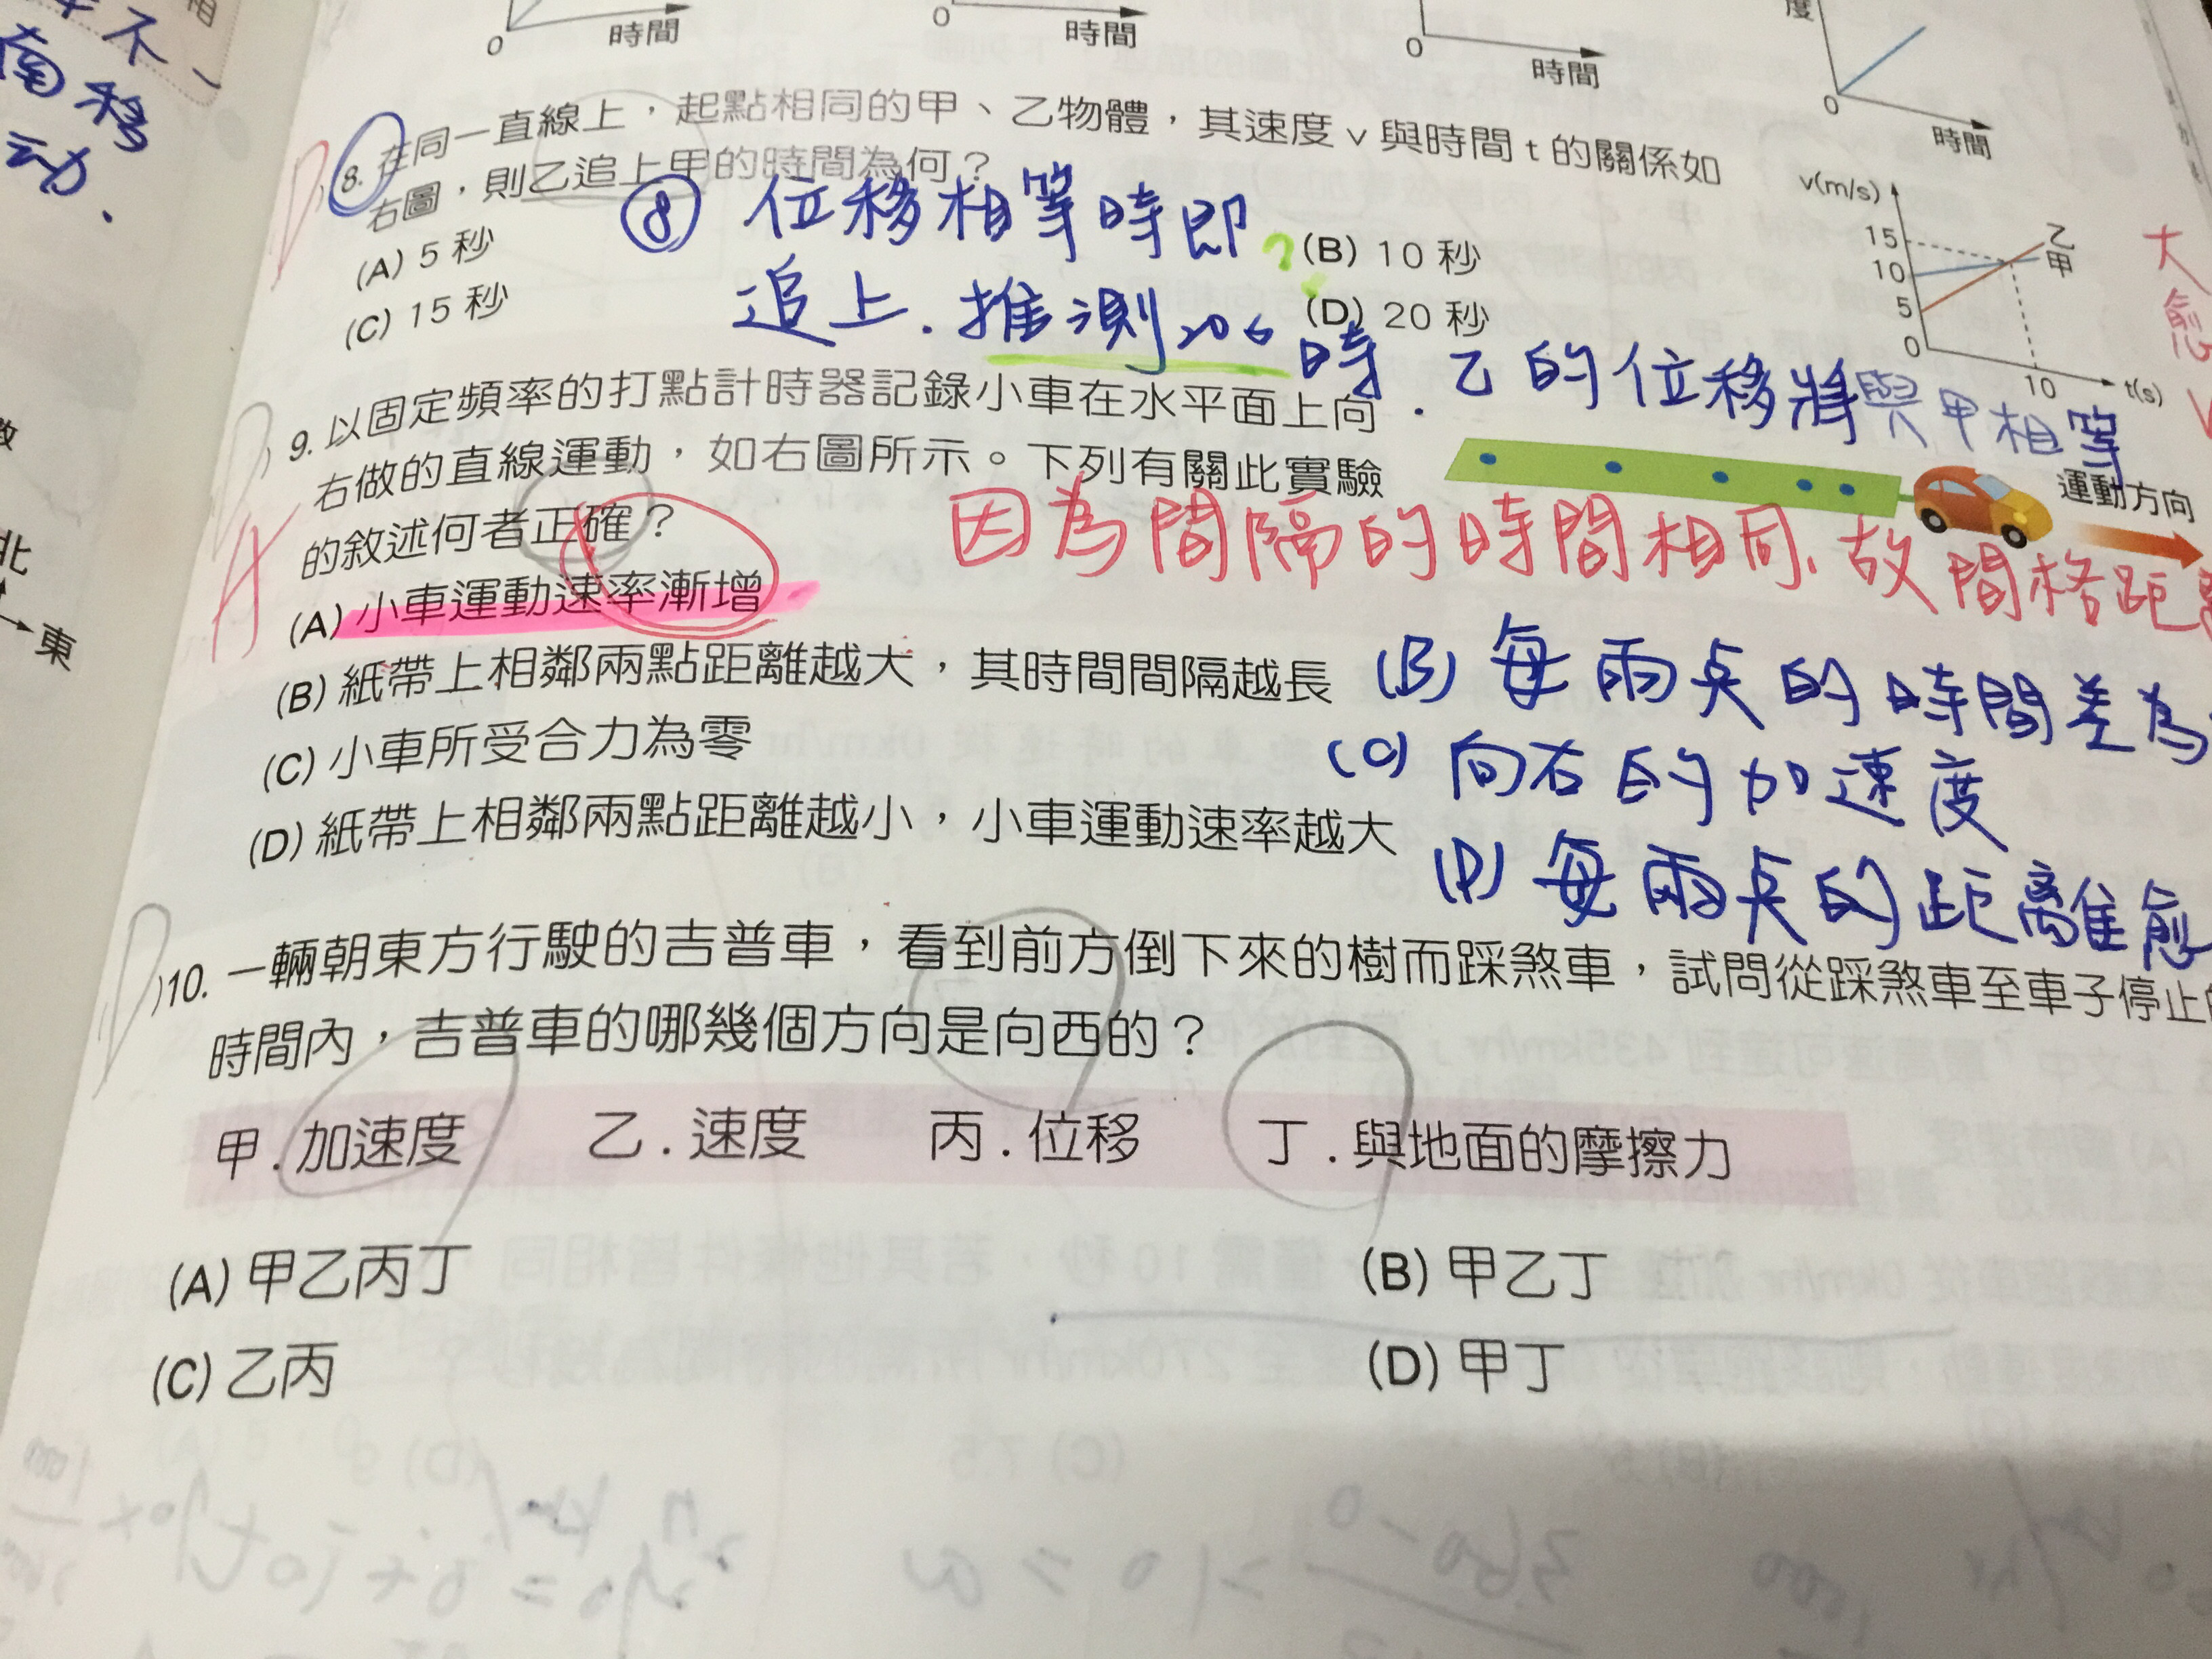 相
年不、
南移
动.
數
北
東
0 時間
0 時間
0 時間
度
0 時間
8. 在同一直線上，起點相同的甲、乙物體，其速度 v 與時間 t 的關係如
右圖，則乙追上甲的時間為何？
(A) 5 秒
(B) 10 秒
(C) 15 秒
(D) 20 秒
⑧ 位移相等時即
追上. 推測20s時. 乙的位移將與甲相等
?
v(m/s)
15
10
5
0
10
t(s)
乙
甲
大
愈
D
9. 以固定頻率的打點計時器記錄小車在水平面上向
右做的直線運動，如右圖所示。下列有關此實驗
的敘述何者正確？
運動方向
因為間隔的時間相同、故間格距
A
(A) 小車運動速率漸增
(B) 紙帶上相鄰兩點距離越大，其時間間隔越長
(B) 每兩点的時間差為
(C) 小車所受合力為零
(C) 向右的加速度
(D) 紙帶上相鄰兩點距離越小，小車運動速率越大
(D) 每兩点的距離愈
D
10. 一輛朝東方行駛的吉普車，看到前方倒下來的樹而踩煞車，試問從踩煞車至車子停止的
時間內，吉普車的哪幾個方向是向西的？
甲.加速度 乙.速度 丙.位移 丁.與地面的摩擦力
(A) 甲乙丙丁
(B) 甲乙丁
(C) 乙丙
(D) 甲丁